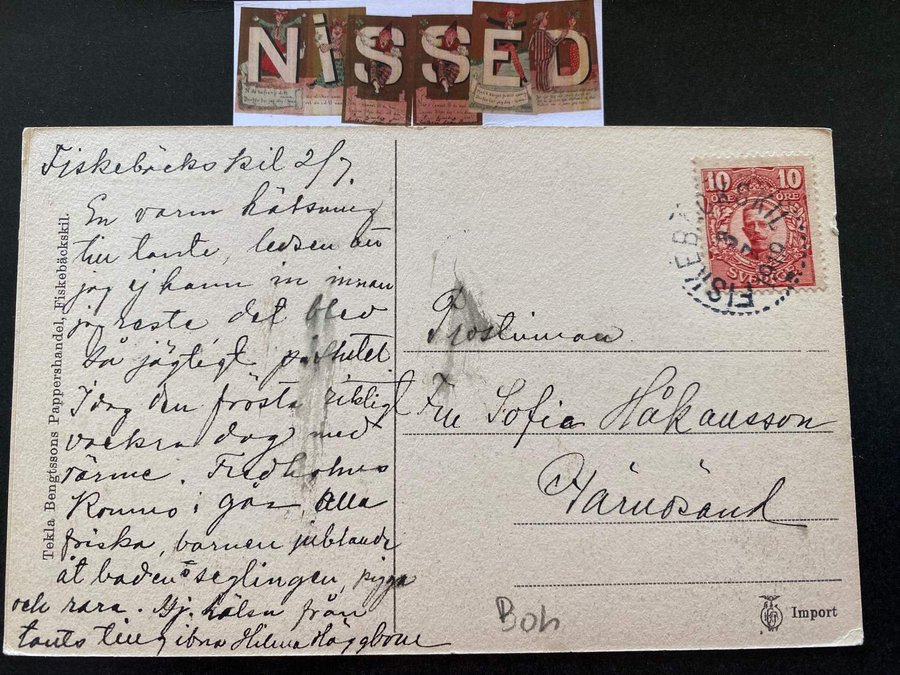 NISSED
Fiskebäckskil 2/7.
En varm hälsning
till tante, ledsen att
jag ej hann in innan
jag reste det blev
så jägtigt på slutet
Idag den första riktigt
vackra dag med
värme. Fredholms
kommo i går alla
friska, barnen jublande
åt baden o seglingen, pigga
och rara. Hj. hälsn från
tants Hilma Häggbom
Tekla Bengtssons Pappershandel, Fiskebäckskil.
10 10
ÖRE ÖRE
SVERIGE
FISKEBÄCKSKIL
Fru Sofia Håkansson
Härnösand
Boh
Import